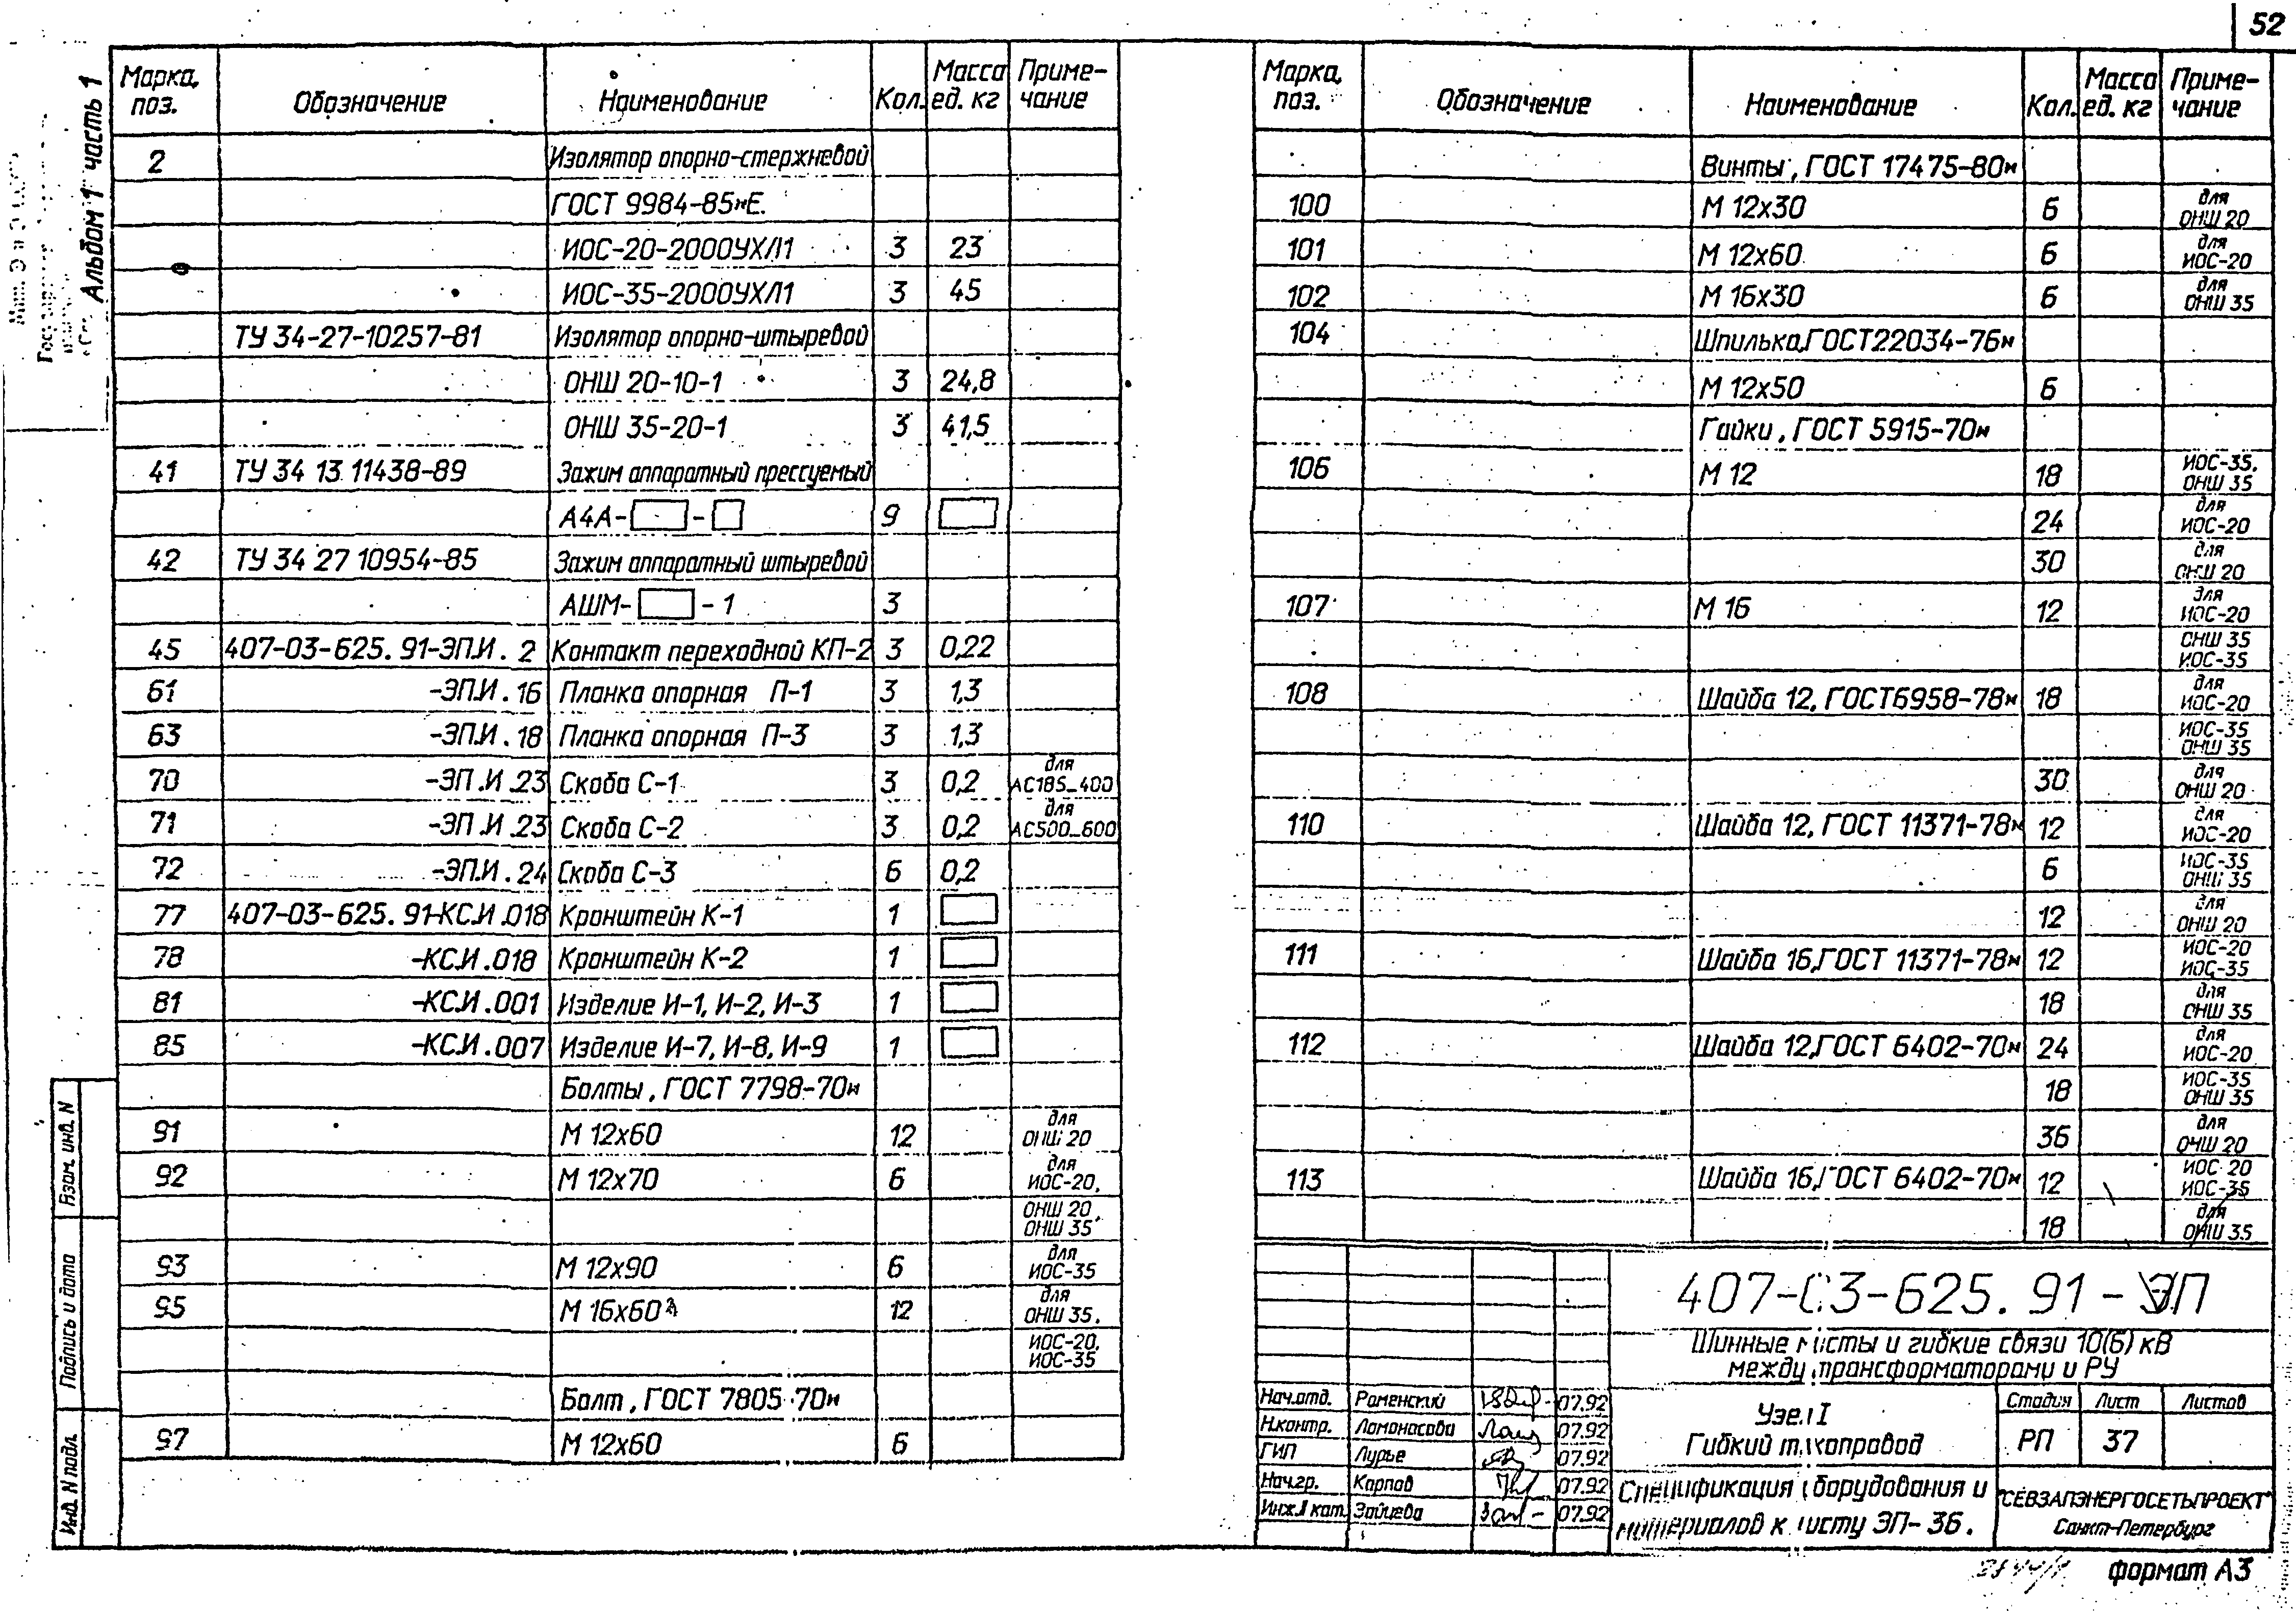 52
Альбом 1 часть 1
Марка, поз. Обозначение Наименование Кол. Масса ед. кг Приме-чание
2 Изолятор опорно-стержневой
ГОСТ 9984-85*Е.
ИОС-20-2000УХЛ1 3 23
ИОС-35-2000УХЛ1 3 45
ТУ 34-27-10257-81 Изолятор опорно-штыревой
ОНШ 20-10-1 3 24,8
ОНШ 35-20-1 3 41,5
41 ТУ 34 13 11438-89 Зажим аппаратный прессуемый
А4А- - 9
42 ТУ 34 27 10954-85 Зажим аппаратный штыревой
АШМ- - 1 3
45 407-03-625.91-ЭП.И.2 Контакт переходной КП-2 3 0,22
61 -ЭП.И.16 Планка опорная П-1 3 1,3
63 -ЭП.И.18 Планка опорная П-3 3 1,3
70 -ЭП.И.23 Скоба С-1 3 0,2 для АС185_400
71 -ЭП.И.23 Скоба С-2 3 0,2 для АС500_600
72 -ЭП.И.24 Скоба С-3 6 0,2
77 407-03-625.91-КС.И.018 Кронштейн К-1 1
78 -КС.И.018 Кронштейн К-2 1
81 -КС.И.001 Изделие И-1, И-2, И-3 1
85 -КС.И.007 Изделие И-7, И-8, И-9 1
Болты, ГОСТ 7798-70*
91 М 12х60 12 для ОНШ 20
92 М 12х70 6 для ИОС-20,
ОНШ 20, ОНШ 35
93 М 12х90 6 для ИОС-35
95 М 16х60 12 для ОНШ 35,
ИОС-20, ИОС-35
Болт, ГОСТ 7805-70*
97 М 12х60 6
Марка, поз. Обозначение Наименование Кол. Масса ед. кг Приме-чание
Винты, ГОСТ 17475-80*
100 М 12х30 6 для ОНШ 20
101 М 12х60 6 для ИОС-20
102 М 16х30 6 для ОНШ 35
104 Шпилька,ГОСТ22034-76*
М 12х50 6
Гайки, ГОСТ 5915-70*
106 М 12 18 ИОС-35, ОНШ 35
24 для ИОС-20
30 для ОНШ 20
107 М 16 12 для ИОС-20
ОНШ 35 ИОС-35
108 Шайба 12, ГОСТ6958-78* 18 для ИОС-20
ИОС-35 ОНШ 35
30 для ОНШ 20
110 Шайба 12, ГОСТ 11371-78* 12 для ИОС-20
6 ИОС-35 ОНШ 35
12 для ОНШ 20
111 Шайба 16,ГОСТ 11371-78* 12 ИОС-20 ИОС-35
18 для ОНШ 35
112 Шайба 12,ГОСТ 6402-70* 24 для ИОС-20
18 ИОС-35 ОНШ 35
36 для ОНШ 20
113 Шайба 16,ГОСТ 6402-70* 12 ИОС 20 ИОС-35
18 для ОНШ 35
407-03-625.91-ЭП
Шинные мосты и гибкие связи 10(6) кВ
между трансформаторами и РУ
Нач.отд. Роменский 07.92
Н.контр. Ломоносова 07.92
ГИП Лурье 07.92
Нач.гр. Карпов 07.92
Инж.I кат. Зайцева 07.92
Узел I
Гибкий токопровод
Стадия Лист Листов
РП 37
Спецификация оборудования и
материалов к листу ЭП-36.
"СЕВЗАПЭНЕРГОСЕТЬПРОЕКТ"
Санкт-Петербург
формат А3
Взам. инв. N
Подпись и дата
Инв. N подл.